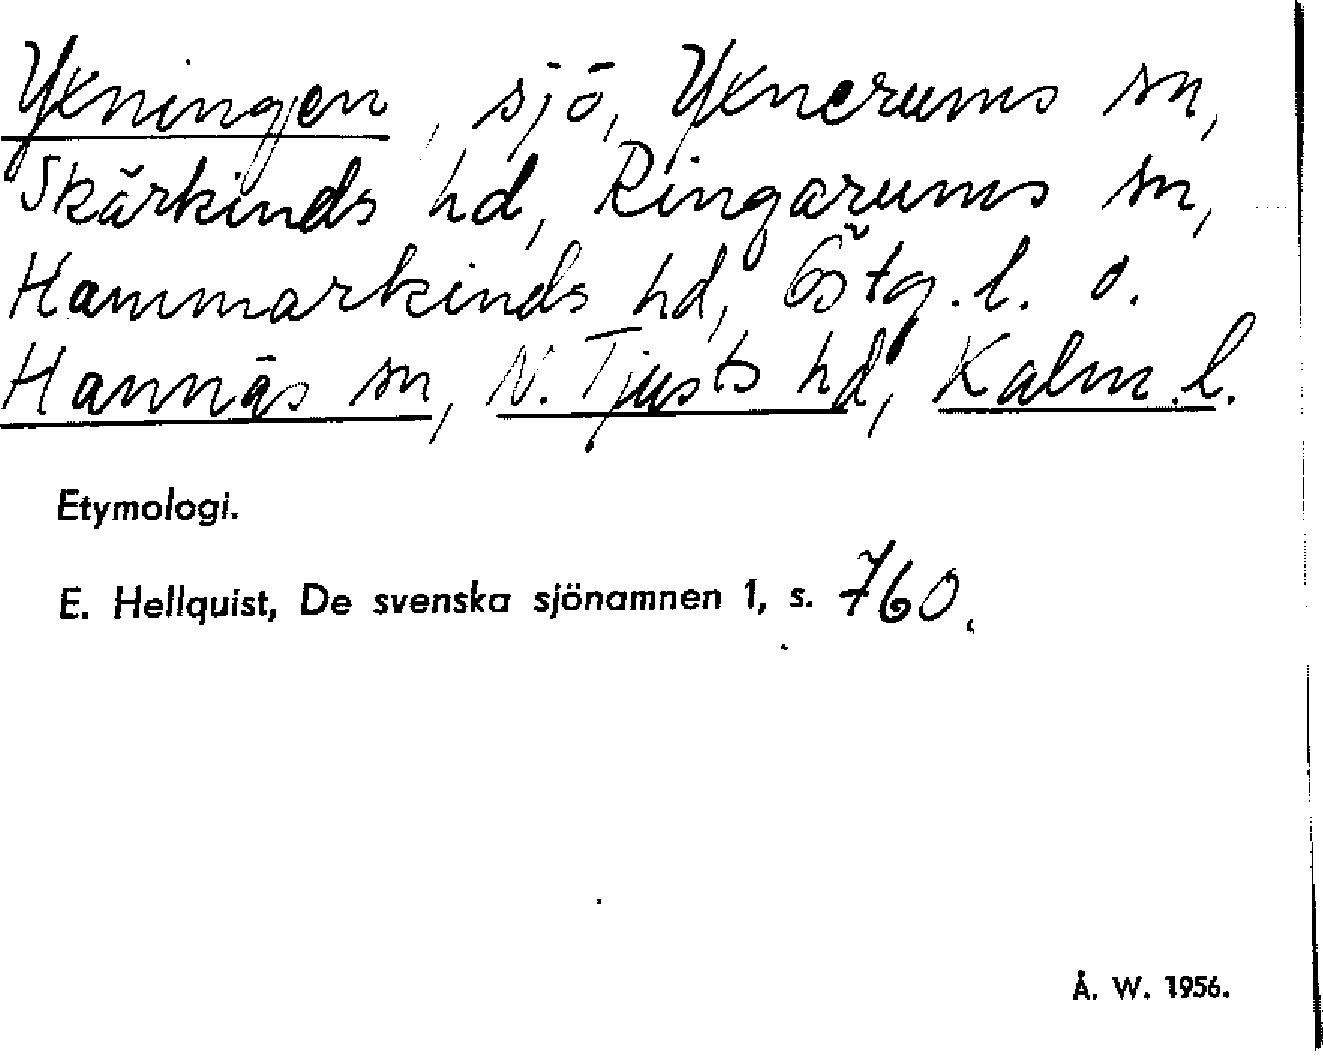 Ykningen, sjö, Yxnerums sn,
Skärkinds hd, Ringarums sn,
Hammarkinds hd, Östg. l. o.
Hannäs sn, N. Tjusts hd, Kalm. l.
Etymologi.
E. Hellquist, De svenska sjönamnen 1, s. 760.
Å. W. 1956.